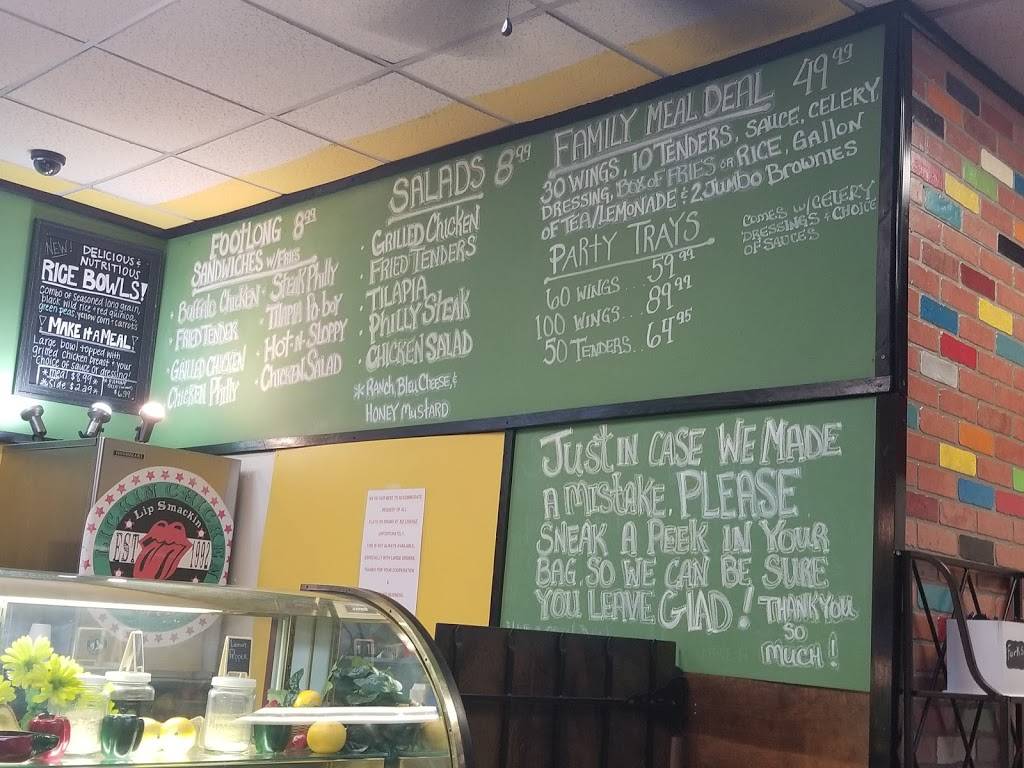 NEW! DELICIOUS &
NUTRITIOUS
RICE BOWLS!
Combo of seasoned long grain,
black wild rice + red quinoa,
green peas, yellow corn + carrots
MAKE it A MEAL
Large bowl topped with
grilled chicken breast + your
choice of sauce or dressing!
*meal $8.99*
*Side $2.29*
$6.99
FOOTLONG 8.99
SANDWICHES w/ FRIES
• BUFFALO CHICKEN
• FRIED TENDER
• GRILLED CHICKEN
CHICKEN PHILLY
• STEAK PHILLY
• TILAPIA PO-BOY
• HOT-N-SLOPPY
• CHICKEN SALAD
SALADS 8.99
• GRILLED CHICKEN
• FRIED TENDERS
• TILAPIA
• PHILLY STEAK
• CHICKEN SALAD
* RANCH, BLEU CHEESE, &
HONEY MUSTARD
FAMILY MEAL DEAL 49.99
30 WINGS, 10 TENDERS, SAUCE, CELERY
DRESSING, BOX OF FRIES OR RICE, GALLON
OF TEA/LEMONADE & 2 JUMBO BROWNIES
PARTY TRAYS
60 WINGS... 59.99
100 WINGS... 89.99
50 TENDERS... 64.95
COMES W/ CELERY
DRESSINGS & CHOICE
OF SAUCES
JUST IN CASE WE MADE
A MISTAKE, PLEASE
SNEAK A PEEK IN YOUR
BAG, SO WE CAN BE SURE
YOU LEAVE GLAD! THANK YOU
SO
MUCH!
Lip Smackin
EST 1992